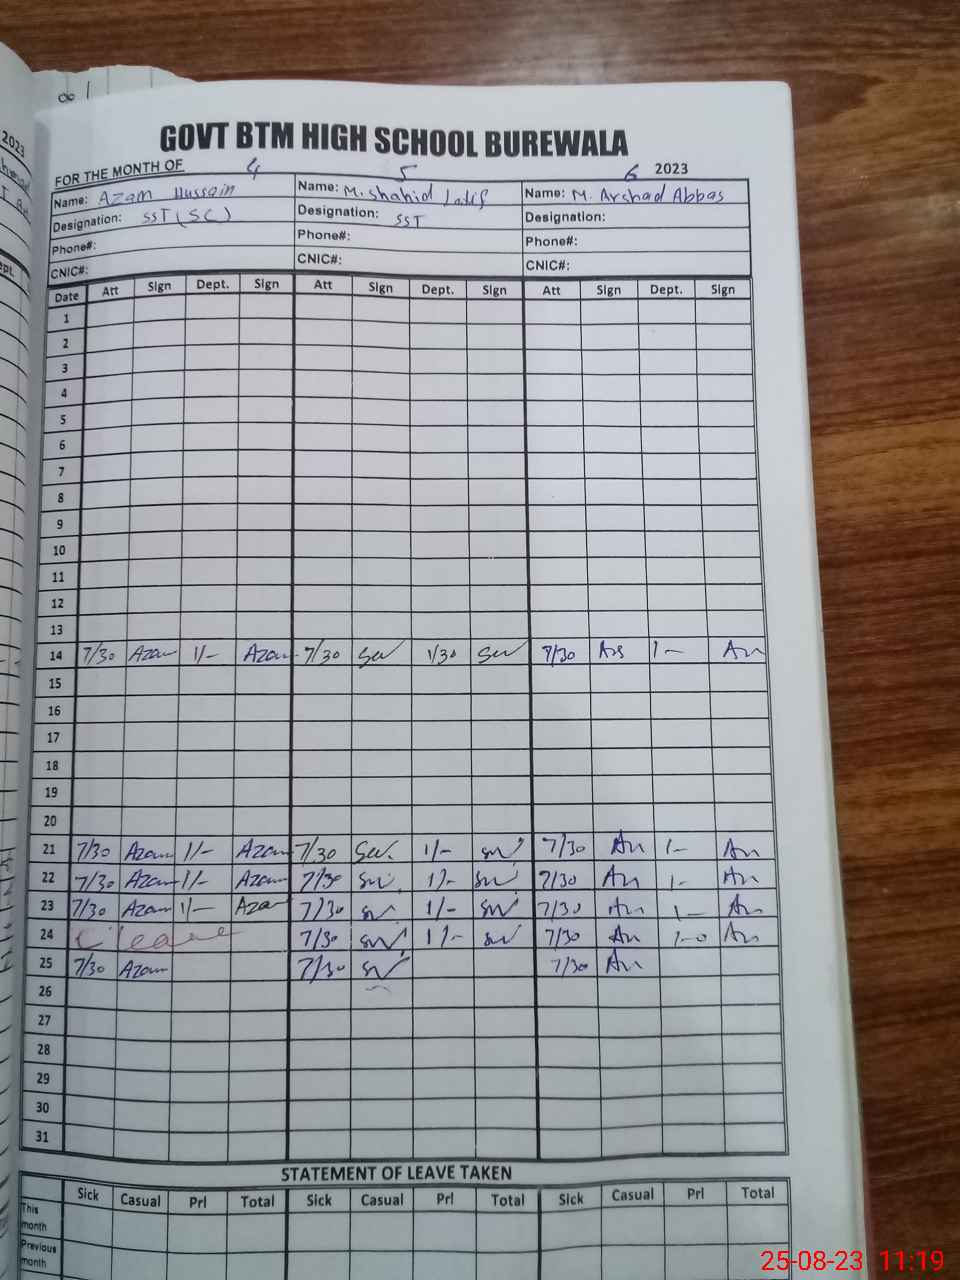 2023
GOVT BTM HIGH SCHOOL BUREWALA
FOR THE MONTH OF 4 5 6 2023
Name: Azam Hussain Name: M. Shahid Latif Name: M. Arshad Abbas
Designation: SST (SC) Designation: SST Designation:
Phone#: Phone#: Phone#:
CNIC#: CNIC#: CNIC#:
Date Att Sign Dept. Sign Att Sign Dept. Sign Att Sign Dept. Sign
1
2
3
4
5
6
7
8
9
10
11
12
13
14 7/30 Azam 1/- Azam 7/30 1/30 7/30 1-
15
16
17
18
19
20
21 7/30 Azam 1/- Azam 7/30 1/- 7/30 1-
22 7/30 Azam 1/- Azam 7/30 1/- 7/30 1-
23 7/30 Azam 1/- Azam 7/30 1/- 7/30 1-
24 C leave 7/30 1/- 7/30 1-0
25 7/30 Azam 7/30 7/30
26
27
28
29
30
31
STATEMENT OF LEAVE TAKEN
Sick Casual Prl Total Sick Casual Prl Total Sick Casual Prl Total
This month
Previous month
25-08-23 11:19